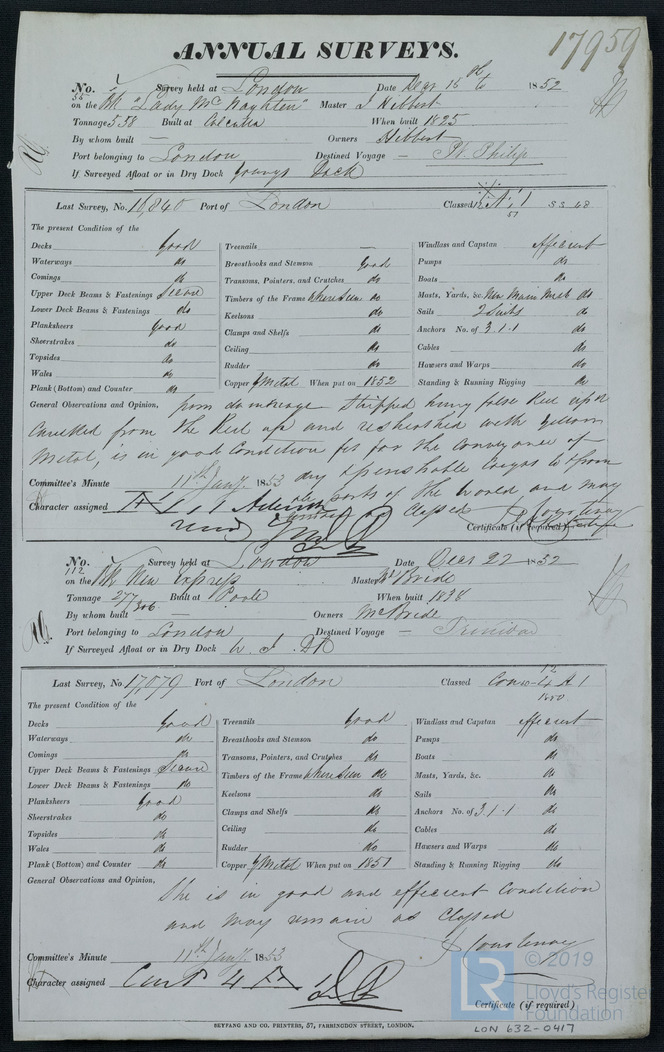 17959
ANNUAL SURVEYS.
No. 55 Survey held at London Date Decr 15th 1852
on the Bk "Lady McNaghten" Master J Hibbert
Tonnage 558 Built at Calcutta When built 1825
By whom built — Owners Hibbert
Port belonging to London Destined Voyage — Pt. Philip
If Surveyed Afloat or in Dry Dock Youngs Dock
Last Survey, No. 16840 Port of London Classed Æ 1 SS 48
51
The present Condition of the
Decks Good Treenails — Windlass and Capstan efficient
Waterways do Breasthooks and Stemson Good Pumps do
Comings do Transoms, Pointers, and Crutches do Boats do
Upper Deck Beams & Fastenings Secure Timbers of the Frame where seen do Masts, Yards, &c. New Main Mast do
Lower Deck Beams & Fastenings do Keelsons do Sails 2 Suits do
Planksheers Good Clamps and Shelfs do Anchors No. of 3.1.1 do
Sheerstrakes do Ceiling do Cables do
Topsides do Rudder do Hawsers and Warps do
Wales do Copper Y Metal When put on 1852 Standing & Running Rigging do
Plank (Bottom) and Counter do
General Observations and Opinion, from damage Stripped hung false Keel up &
Caulked from the Keel up and resheathed with yellow
Metal, is in good Condition fit for the conveyance of
dry & perishable Cargos to & from
all parts of the World and may
as Classed
Committee's Minute 11th Jany. 1853
Character assigned Æ 1
Certificate (if required)
No. 112 Survey held at London Date Decr 22 1852
on the Bk New Express Master McBride
Tonnage 277/306 Built at Poole When built 1838
By whom built — Owners McBride
Port belonging to London Destined Voyage — Trinidad
If Surveyed Afloat or in Dry Dock W. I. Dk
Last Survey, No. 17,079 Port of London Classed Cont 12 4 A 1
1850
The present Condition of the
Decks Good Treenails Good Windlass and Capstan efficient
Waterways do Breasthooks and Stemson do Pumps do
Comings do Transoms, Pointers, and Crutches do Boats do
Upper Deck Beams & Fastenings Secure Timbers of the Frame where seen do Masts, Yards, &c. do
Lower Deck Beams & Fastenings do Keelsons do Sails do
Planksheers Good Clamps and Shelfs do Anchors No. of 3.1.1 do
Sheerstrakes do Ceiling do Cables do
Topsides do Rudder do Hawsers and Warps do
Wales do Copper Y Metal When put on 1851 Standing & Running Rigging do
Plank (Bottom) and Counter do
General Observations and Opinion,
She is in good and efficient Condition
and may remain as Classed
J Courtenay
Committee's Minute 11th Jany. 1853
Character assigned Cont 4 A
Certificate (if required)
SEYFANG AND CO. PRINTERS, 57, FARRINGDON STREET, LONDON.
LR © 2019
Lloyd's Register
Foundation
LON 632-0417